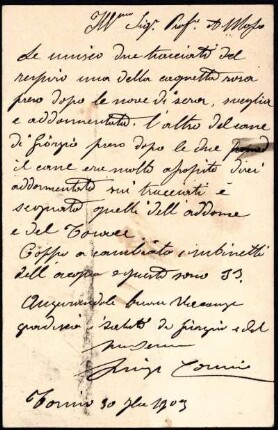 Ill.mo Sig. Prof. A. Mosso
Le unisco due tracciati del
respiro una della cagnetta rossa
preso dopo le nove di sera, sveglia
e addormentata. L'altro del cane
di Giorgio preso dopo le due
il cane era molto apposito direi
addormentato sui tracciati è
segnato quelli dell addome
e del Torace
a cambiato i rubinetti
dell acqua e questi sono 53.
Augurandole buone Vacanze
gradisca i saluti da Giorgio e del
Luigi
Torino 30 1903